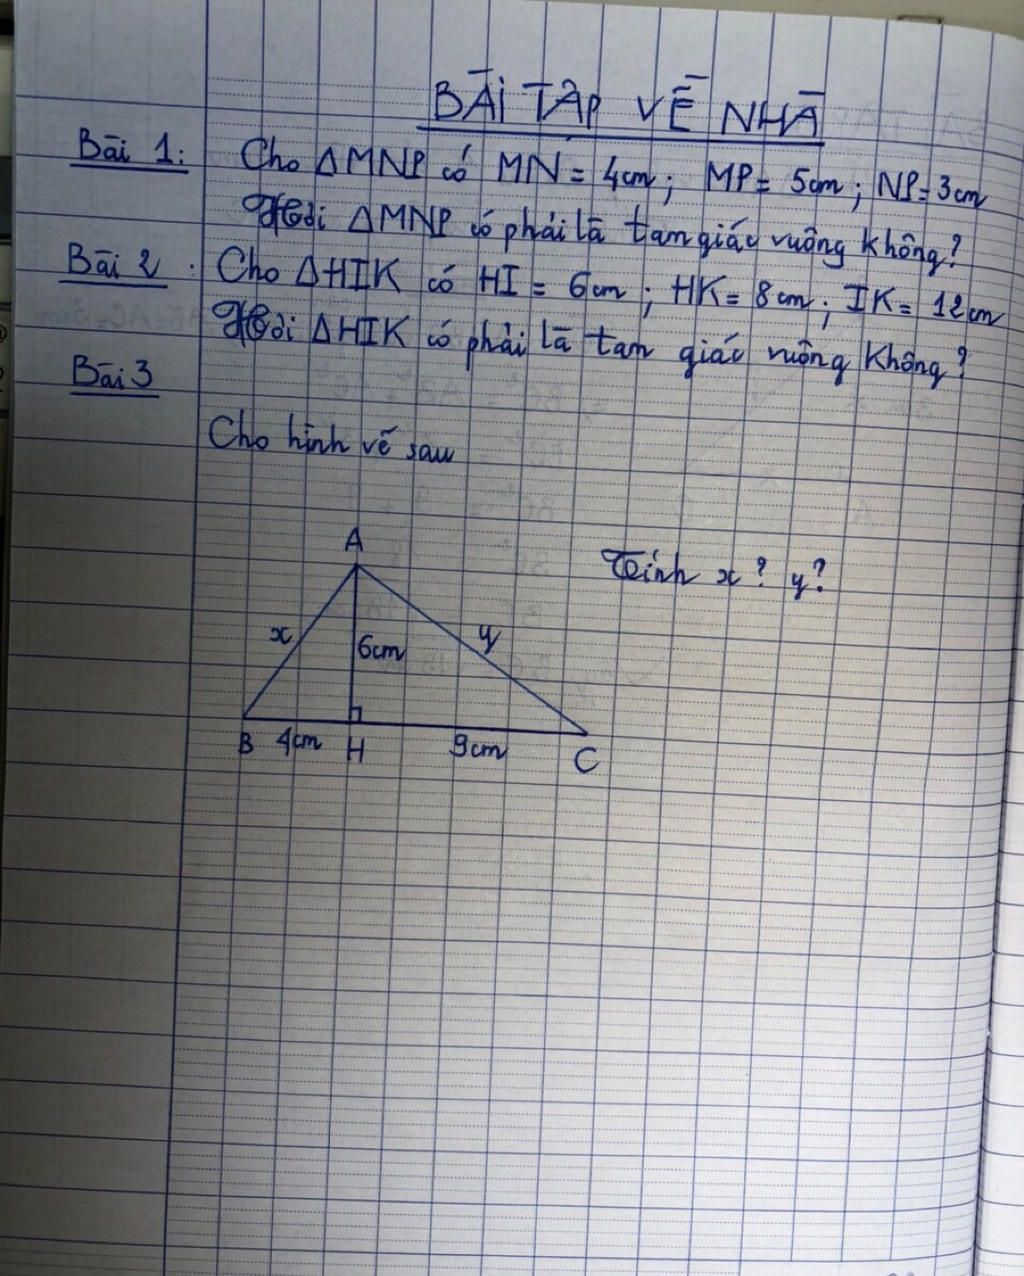 BÀI TẬP VỀ NHÀ
Bài 1: Cho ΔMNP có MN = 4cm; MP = 5cm; NP = 3cm
Hỏi ΔMNP có phải là tam giác vuông không?
Bài 2. Cho ΔHIK có HI = 6cm; HK = 8cm; IK = 12cm
Hỏi ΔHIK có phải là tam giác vuông không?
Bài 3
Cho hình vẽ sau
Tính x? y?
A
x
6cm
y
B 4cm H 9cm C